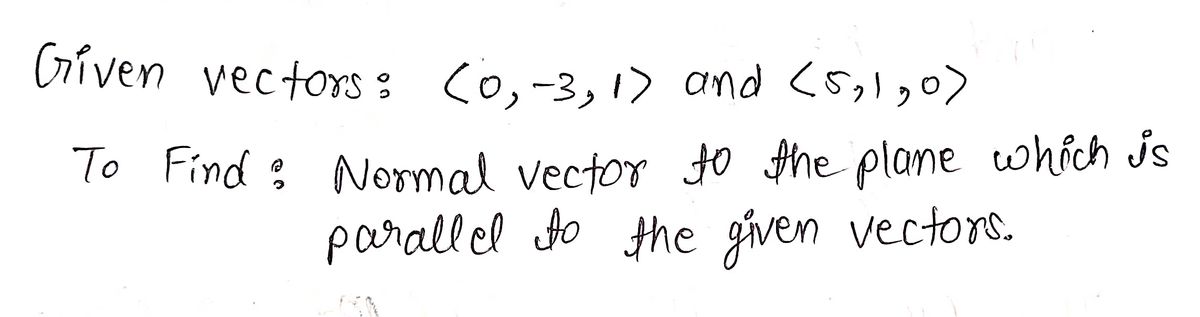 Given vectors: <0,-3,1> and <5,1,0>
To Find: Normal vector to the plane which is
parallel to the given vectors.